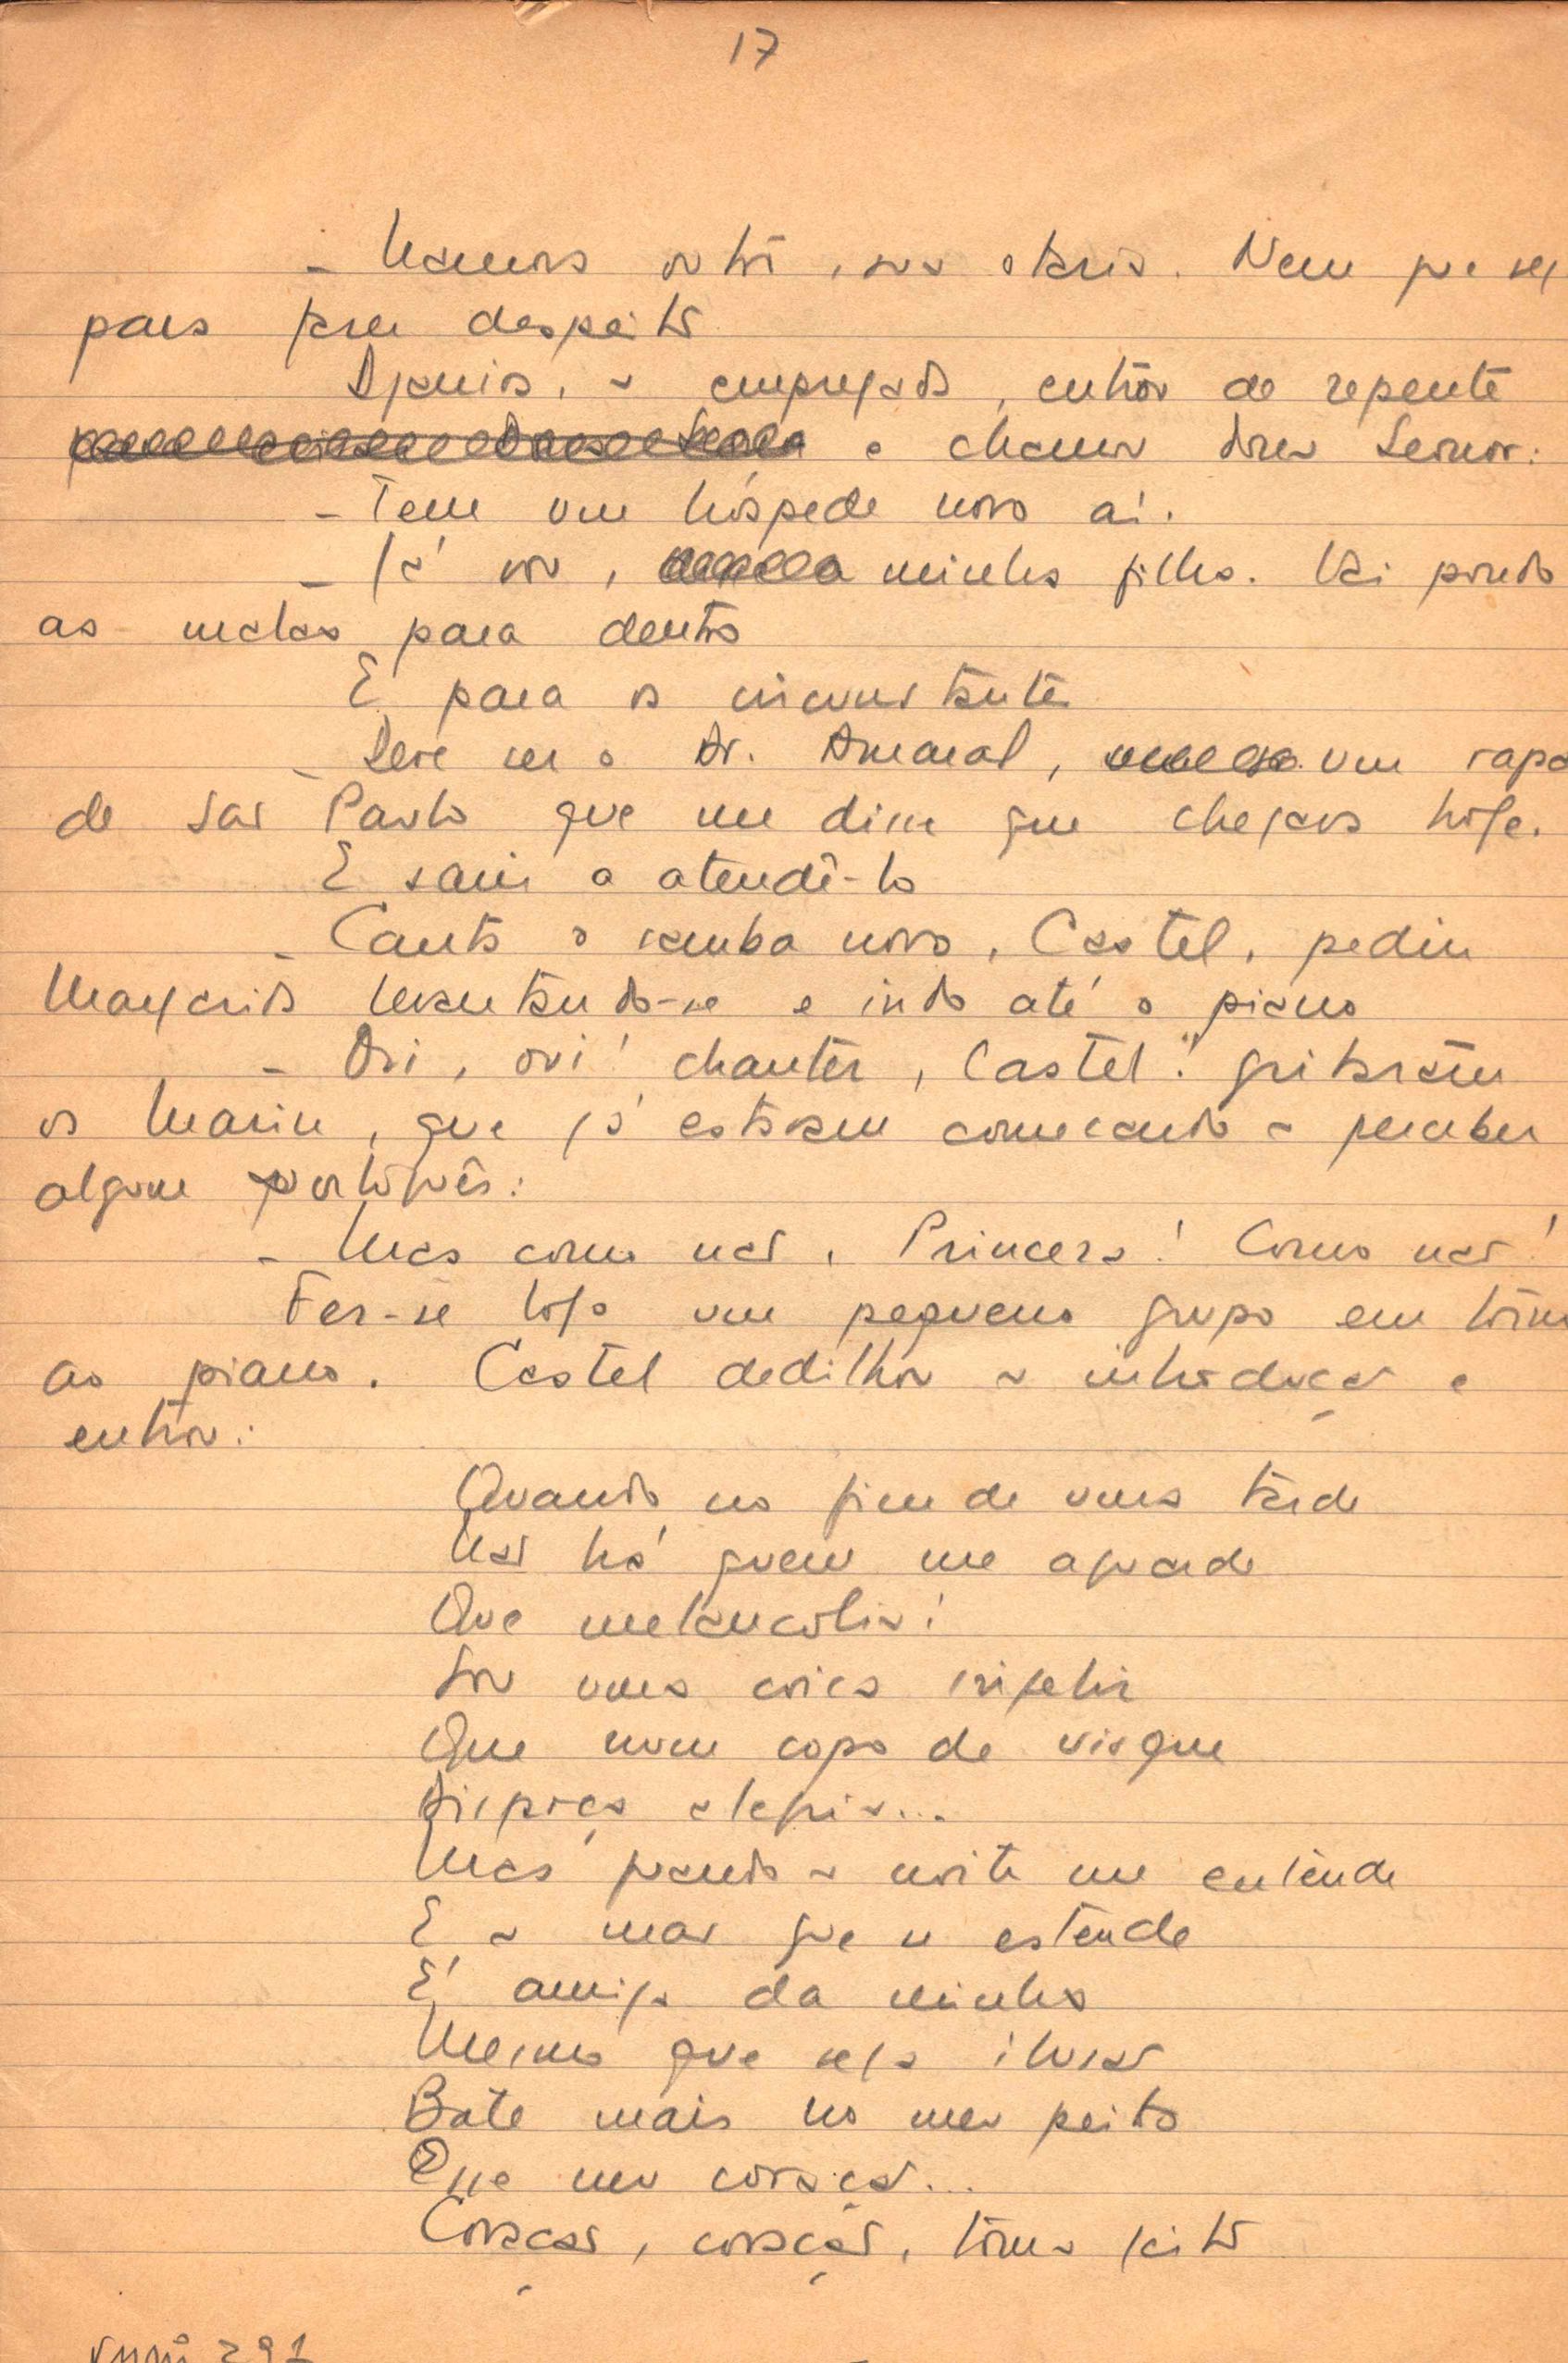 17
- Namora outro, sua otária. Nem que seja
para fazer despeito
Djanira, a empregada, entrou de repente
e chamou dona Leonor:
- Tem um hóspede novo aí.
- Já vou, minha filha. Vai pondo
as malas para dentro
E para os circunstantes
- Deve ser o Dr. Amaral, um rapaz
de São Paulo que me disse que chegava hoje.
E saiu a atendê-lo
- Canta o samba novo, Castel, pediu
Margarida levantando-se e indo até o piano
- Oui, oui! chanter, Castel! gritaram
os Marin, que já estavam começando a perceber
algum português:
- Mas como não, Princesa! Como não!
Fez-se logo um pequeno grupo em tôrno
ao piano. Castel dedilhou a introdução e
entrou:
Quando no fim de uma tarde
Não há quem me aguarde
Que melancolia!
Sou uma coisa
Que num copo de visque
Disfarça alegria...
Mas quando a noite me entende
E o mar que se estende
É amigo da minha
Mesmo que seja ilusão
Bate mais no meu peito
Que meu coração...
Coração, coração, toma jeito